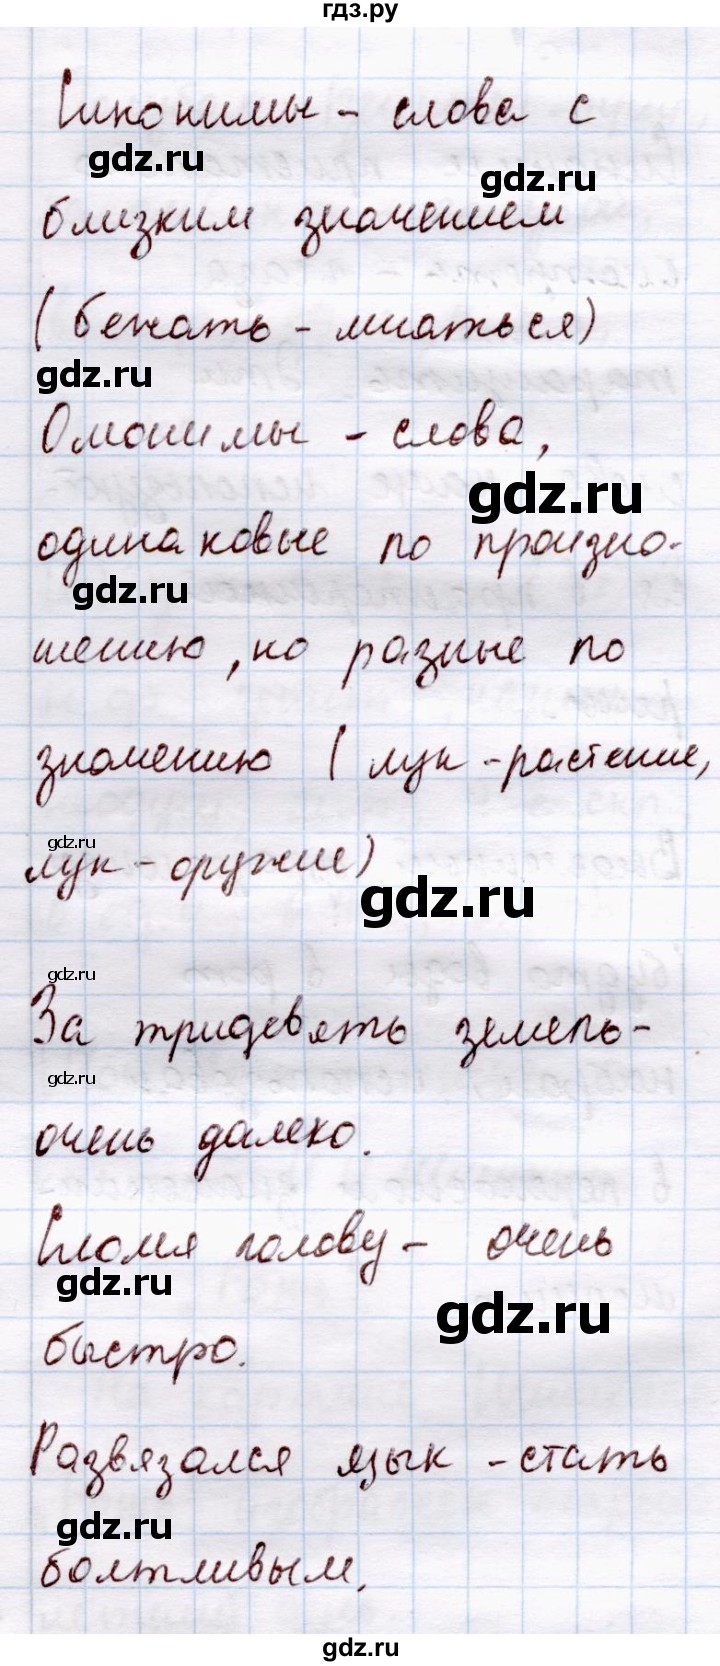 гдз.ру
Синонимы - слова с
gdz.ru
gdz.ru
близким значением
(бежать - мчаться)
gdz.ru
Омонимы - слова,
gdz.ru
одинаковые по произно-
gdz.ru
шению, но разные по
значению (лук - растение,
gdz.ru
лук - оружие)
gdz.ru
gdz.ru
За тридевять земель -
gdz.ru
очень далеко.
Сломя голову - очень
gdz.ru
gdz.ru
быстро.
Развязался язык - стать
gdz.ru
болтливым.
gdz.ru